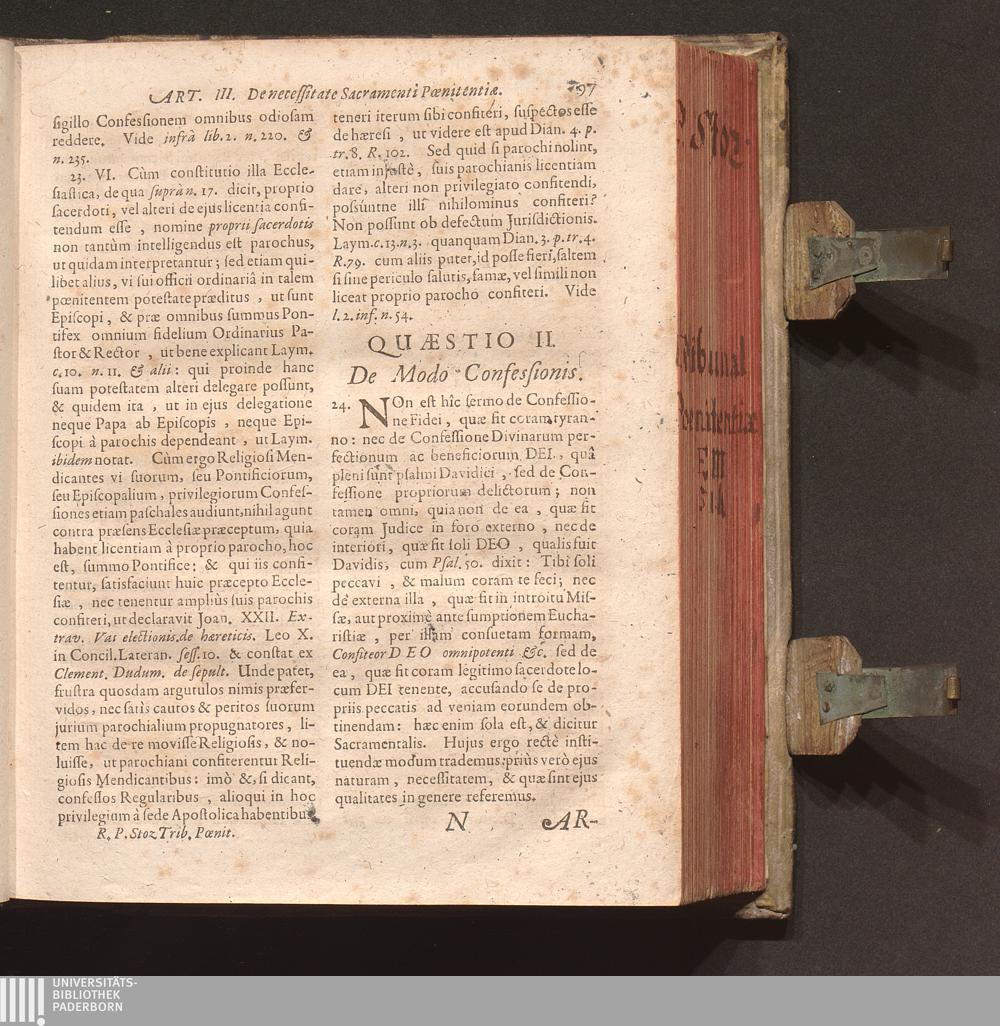 ART. III. De necessitate Sacramenti Pœnitentiæ. 97
sigillo Confessionem omnibus odiosam
reddere. Vide infrà lib. 2. n. 220. &
n. 235.
23. VI. Cùm constitutio illa Eccle-
siastica, de qua suprà n. 17. dicit, proprio
sacerdoti, vel alteri de ejus licentia confi-
tendum esse, nomine proprii sacerdotis
non tantùm intelligendus est parochus,
ut quidam interpretantur; sed etiam qui-
libet alius, vi sui officii ordinariâ in talem
pœnitentem potestate præditus, ut sunt
Episcopi, & præ omnibus summus Pon-
tifex omnium fidelium Ordinarius Pa-
stor & Rector, ut bene explicant Laym.
c. 10. n. 11. & alii: qui proinde hanc
suam potestatem alteri delegare possunt,
& quidem ita, ut in ejus delegatione
neque Papa ab Episcopis, neque Epi-
scopi à parochis dependeant, ut Laym.
ibidem notat. Cùm ergo Religiosi Men-
dicantes vi suorum, seu Pontificiorum,
seu Episcopalium, privilegiorum Confes-
siones etiam paschales audiunt, nihil agunt
contra præsens Ecclesiæ præceptum, quia
habent licentiam à proprio parocho, hoc
est, summo Pontifice: & qui iis confi-
tentur, satisfaciunt huic præcepto Eccle-
siæ, nec tenentur ampliùs suis parochis
confiteri, ut declaravit Joan. XXII. Ex-
trav. Vas electionis. de hæreticis. Leo X.
in Concil. Lateran. sess. 10. & constat ex
Clement. Dudum. de sepult. Unde patet,
frustra quosdam argutulos nimis præfer-
vidos, nec satis cautos & peritos suorum
jurium parochialium propugnatores, li-
tem hac de re movisse Religiosis, & no-
luisse, ut parochiani confiterentur Reli-
giosis Mendicantibus: imò &, si dicant,
confessos Regularibus, alioqui in hoc
privilegium à sede Apostolica habentibus
R. P. Stoz Trib. Pœnit.
teneri iterum sibi confiteri, suspectos esse
de hæresi, ut videre est apud Dian. 4. p.
tr. 8. R. 102. Sed quid si parochi nolint,
etiam injustè, suis parochianis licentiam
dare, alteri non privilegiato confitendi,
possuntne illi nihilominus confiteri?
Non possunt ob defectum Jurisdictionis.
Laym. c. 13. n. 3. quanquam Dian. 3. p. tr. 4.
R. 79. cum aliis putet, id posse fieri, saltem
si sine periculo salutis, famæ, vel simili non
liceat proprio parocho confiteri. Vide
l. 2. inf. n. 54.
QUÆSTIO II.
De Modo Confessionis.
24. NOn est hîc sermo de Confessio-
ne Fidei, quæ fit coram tyran-
no: nec de Confessione Divinarum per-
fectionum ac beneficiorum DEI, quâ
pleni sunt psalmi Davidici, sed de Con-
fessione propriorum delictorum; non
tamen omni, quia non de ea, quæ fit
coram Judice in foro externo, nec de
interiori, quæ fit soli DEO, qualis fuit
Davidis, cum Psal. 50. dixit: Tibi soli
peccavi, & malum coram te feci; nec
de externa illa, quæ fit in introitu Mis-
sæ, aut proximè ante sumptionem Eucha-
ristiæ, per illam consuetam formam,
Confiteor DEO omnipotenti &c. sed de
ea, quæ fit coram legitimo sacerdote lo-
cum DEI tenente, accusando se de pro-
priis peccatis ad veniam eorundem ob-
tinendam: hæc enim sola est, & dicitur
Sacramentalis. Hujus ergo rectè insti-
tuendæ modum trademus: priùs verò ejus
naturam, necessitatem, & quæ sint ejus
qualitates in genere referemus.
N AR-
P. Stoz.
Tribunal
Pœnitentiæ
UNIVERSITÄTS-
BIBLIOTHEK
PADERBORN